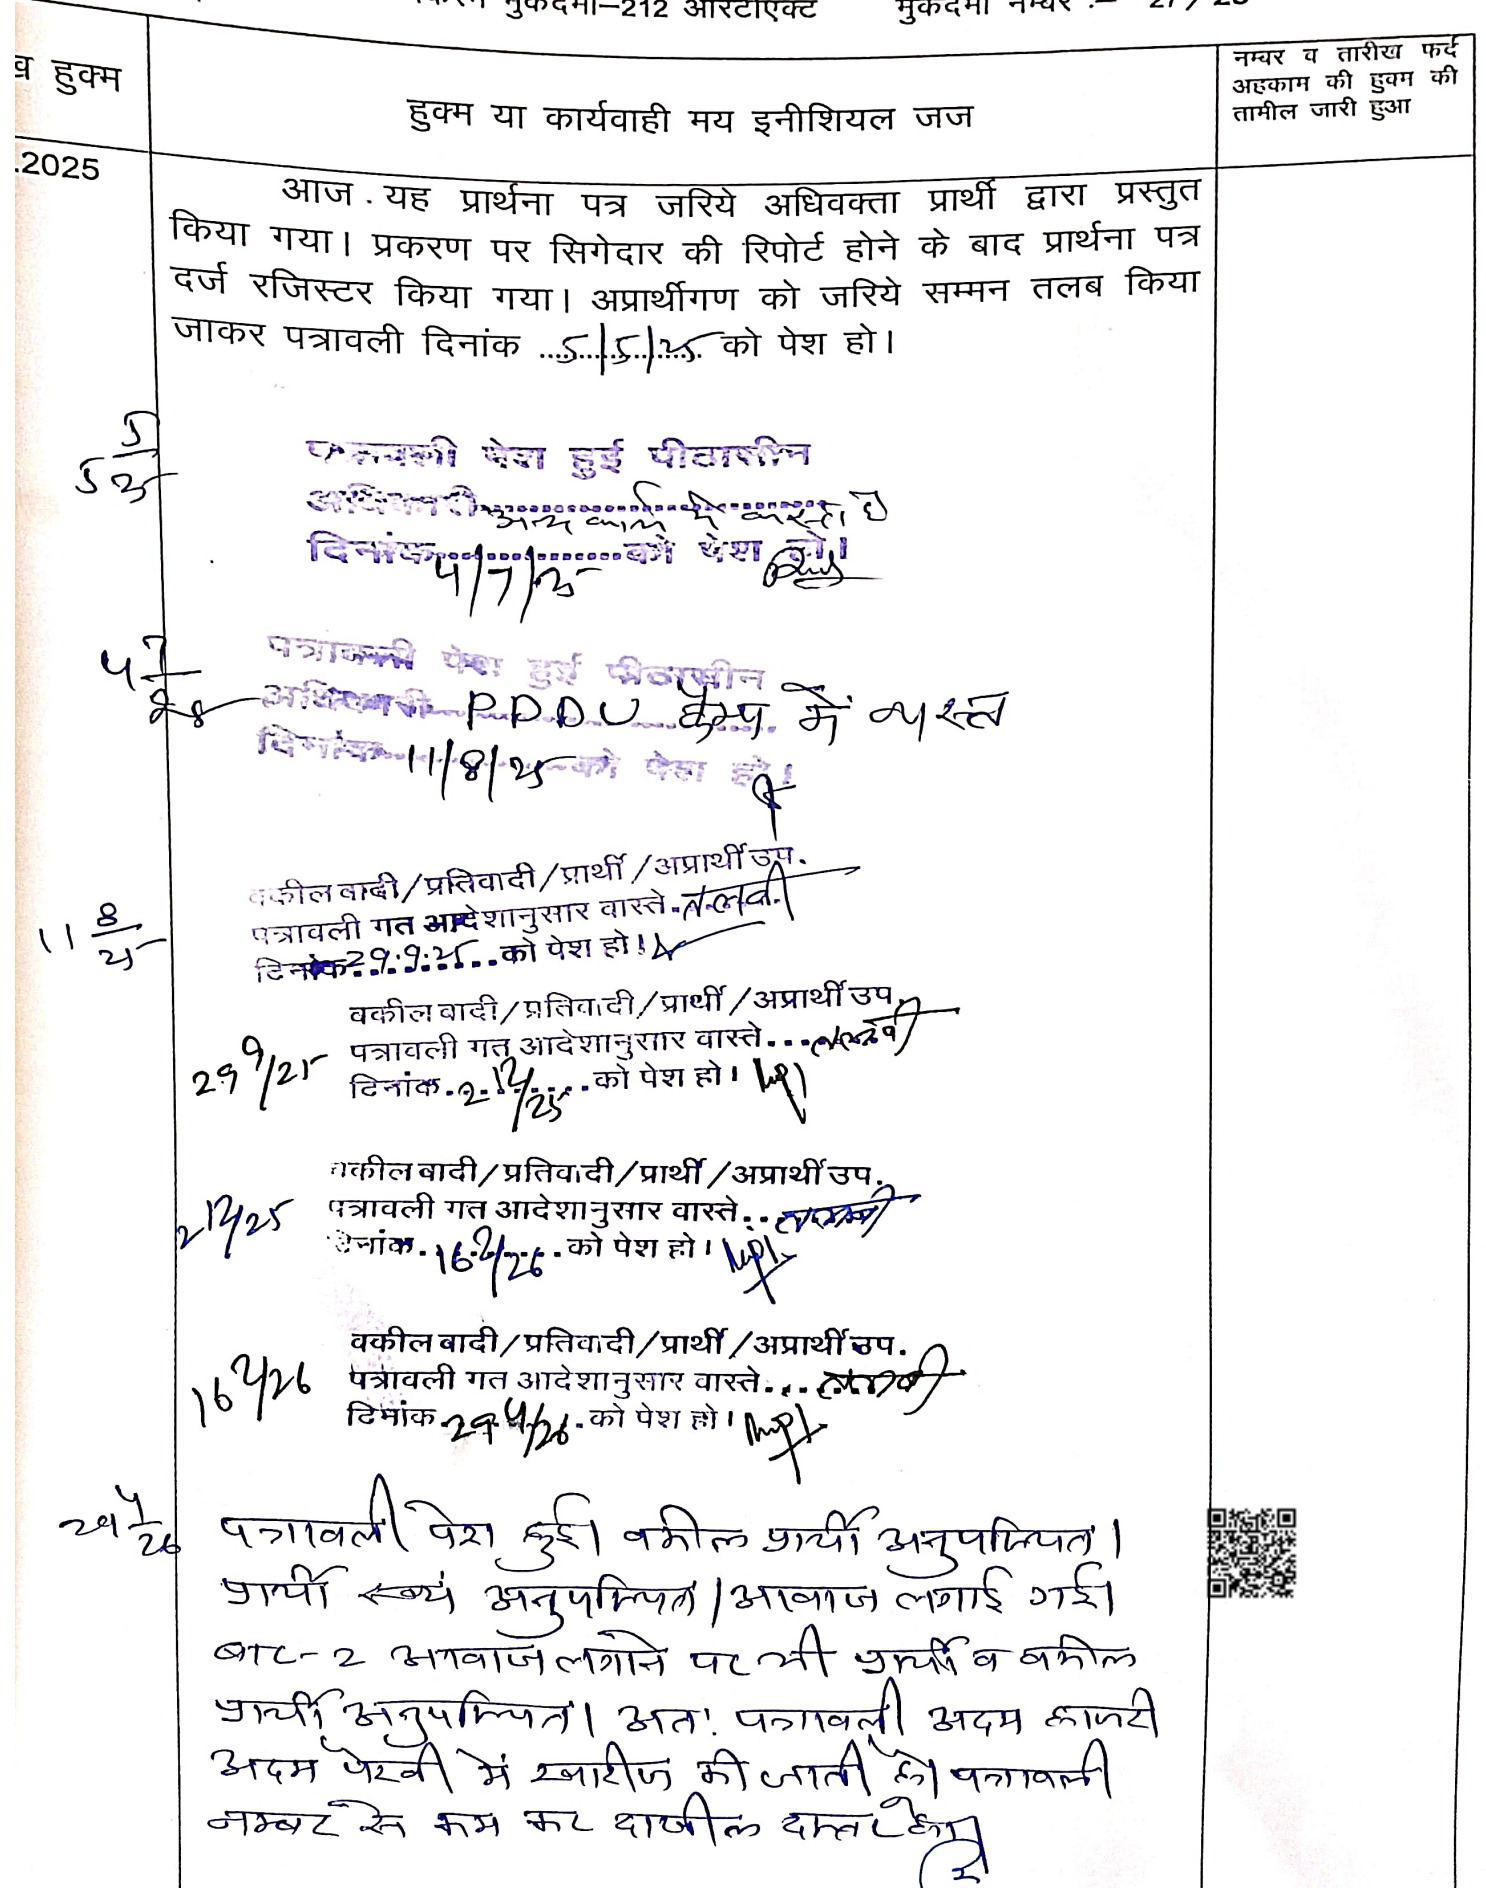 मुकदमा–212 आरटीएक्ट मुकदमा नम्बर :–
व हुक्म
हुक्म या कार्यवाही मय इनीशियल जज
नम्बर व तारीख फर्द
अहकाम की हुक्म की
तामील जारी हुआ
.2025
आज . यह प्रार्थना पत्र जरिये अधिवक्ता प्रार्थी द्वारा प्रस्तुत
किया गया। प्रकरण पर सिगेदार की रिपोर्ट होने के बाद प्रार्थना पत्र
दर्ज रजिस्टर किया गया। अप्रार्थीगण को जरिये सम्मन तलब किया
जाकर पत्रावली दिनांक 5/5/25 को पेश हो।
5 5/25
पत्रावली पेश हुई पीठासीन
अधिकारी अन्य कार्य में व्यस्त है
दिनांक 4/7/25 को पेश हो।
4 7/25
पत्रावली पेश हुई पीठासीन
अधिकारी P D D U कैम्प में व्यस्त
दिनांक 11/8/25 को पेश हो।
वकील वादी/प्रतिवादी/प्रार्थी/अप्रार्थी उप.
11 8/25
पत्रावली गत आदेशानुसार वास्ते तलवी
दिनांक 29.9.25 को पेश हो।
वकील वादी/प्रतिवादी/प्रार्थी/अप्रार्थी उप.
29 9/25 पत्रावली गत आदेशानुसार वास्ते तलवी
दिनांक 2 12/25 को पेश हो।
वकील वादी/प्रतिवादी/प्रार्थी/अप्रार्थी उप.
2 12/25 पत्रावली गत आदेशानुसार वास्ते तलवी
दिनांक 16 2/26 को पेश हो।
वकील वादी/प्रतिवादी/प्रार्थी/अप्रार्थी उप.
16 2/26 पत्रावली गत आदेशानुसार वास्ते तलवी
दिनांक 29 4/26 को पेश हो।
29 4/26 पत्रावली पेश हुई। वकील प्रार्थी अनुपस्थित।
प्रार्थी स्वयं अनुपस्थित। आवाज लगाई गई।
बार-2 आवाज लगाने पर भी प्रार्थी व वकील
प्रार्थी अनुपस्थित। अत: पत्रावली अदम हाजरी
अदम पेरवी में खारीज की जाती है। पत्रावली
नम्बर से कम कर दाखील दफ्तर हो।